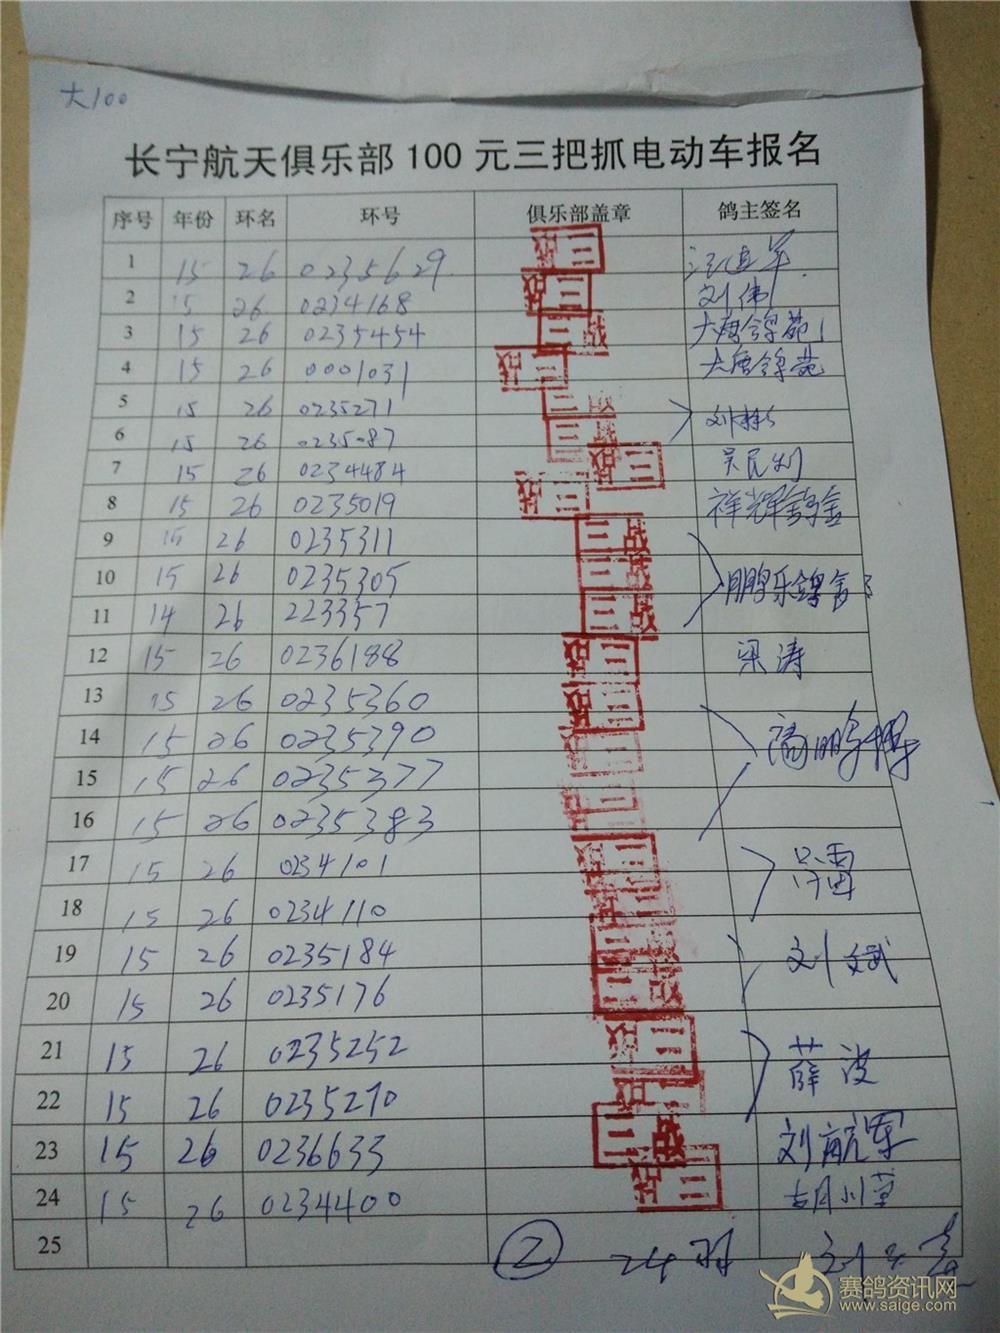 大100
长宁航天俱乐部100元三把抓电动车报名
序号 年份 环名 环号 俱乐部盖章 鸽主签名
1 15 26 0235629 三战
2 15 26 0234168 三战 刘伟
3 15 26 0235454 三战 大唐鸽苑1
4 15 26 0001031 三战 大唐鸽苑
5 15 26 0235271 三战
6 15 26 0235087 三战
7 15 26 0234484 三战 吴民利
8 15 26 0235019 三战 祥辉鸽舍
9 15 26 0235311 三战
10 15 26 0235305 三战 鹏乐鸽舍
11 14 26 223357 三战
12 15 26 0236188 三战 梁涛
13 15 26 0235360 三战
14 15 26 0235390 三战
15 15 26 0235377 三战
16 15 26 0235383 三战
17 15 26 0234101 三战
18 15 26 0234110 三战
19 15 26 0235184 三战 刘斌
20 15 26 0235176 三战
21 15 26 0235252 三战 薛波
22 15 26 0235270 三战
23 15 26 0236633 三战 刘航军
24 15 26 0234400 三战
25 ② 24羽
赛鸽资讯网
www.saige.com